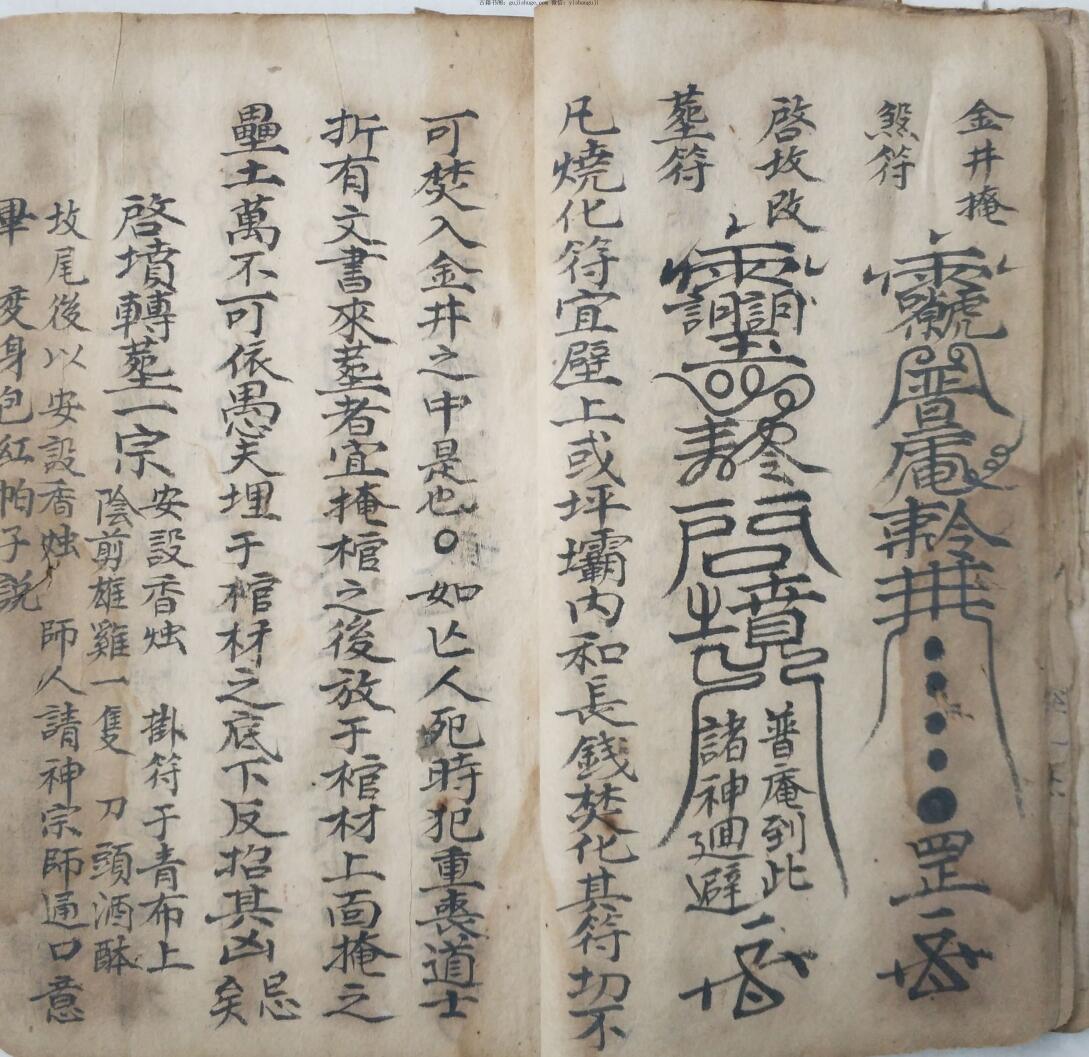 古籍书阁：gujishuge.com 微信：yishanguji
金井掩
煞符
普庵
罡
啓坟改
塟符
啓墳
普庵到此
諸神廻避
凡燒化符宜壁上或坪壩内和長錢焚化其符切不
可焚入金井之中是也○如亡人死時犯重喪道士
折有文書來塟者宜掩棺之後放于棺材上面掩之
壘土萬不可依愚夫埋于棺材之底下反招其凶忌矣
啓墳轉塟一宗
安設香烛 掛符于青布上
陰剪雄雞一隻 刀頭酒酥
坟尾後以安設香烛 師人請神宗師通口意
畢 变身包紅帕子説